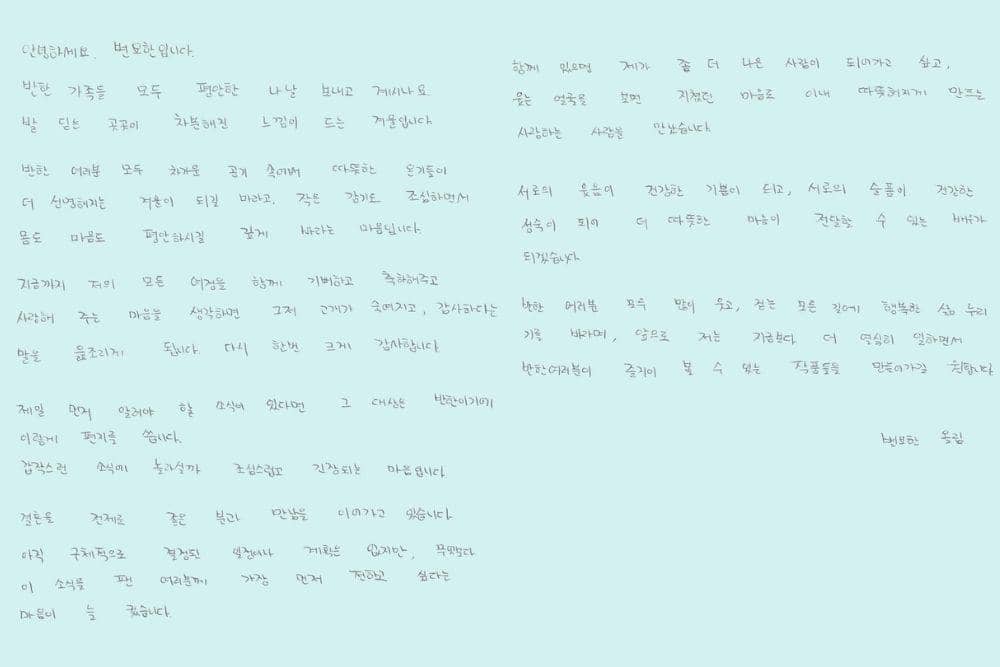 안녕하세요. 변요한입니다.
반한 가족들 모두 평안한 나날 보내고 계시나요
발 딛는 곳곳이 차분해진 느낌이 드는 겨울입니다
반한 여러분 모두 차가운 공기 속에서 따뜻한 온기들이
더 선명해지는 겨울이 되길 바라고, 작은 감기도 조심하면서
몸도 마음도 평안하시길 깊게 바라는 마음입니다.
지금까지 저의 모든 여정을 함께 기뻐하고 축하해주고
사랑해 주는 마음을 생각하면 그저 고개가 숙여지고, 감사하다는
말을 읊조리게 됩니다. 다시 한번 크게 감사합니다
제일 먼저 알려야 할 소식이 있다면 그 대상은 반한이기에
이렇게 편지를 씁니다.
갑작스런 소식에 놀라실까 조심스럽고 긴장되는 마음입니다
결혼을 전제로 좋은 분과 만남을 이어가고 있습니다
아직 구체적으로 결정된 일정이나 계획은 없지만, 무엇보다
이 소식을 팬 여러분께 가장 먼저 전하고 싶다는
마음이 늘 컸습니다.
함께 있으면 제가 좀 더 나은 사람이 되어가고 싶고,
웃는 얼굴을 보면 지쳤던 마음도 이내 따뜻해지게 만드는
사랑하는 사람을 만났습니다
서로의 웃음이 건강한 기쁨이 되고, 서로의 슬픔이 건강한
성숙이 되어 더 따뜻한 마음이 전달할 수 있는 배우가
되겠습니다
반한 여러분 모두 많이 웃고, 걷는 모든 길에 행복한 삶 누리
기를 바라며, 앞으로 저는 지금보다 더 열심히 일하면서
반한여러분이 즐거이 볼 수 있는 작품들을 만들어가길 원합니다
변요한 올림